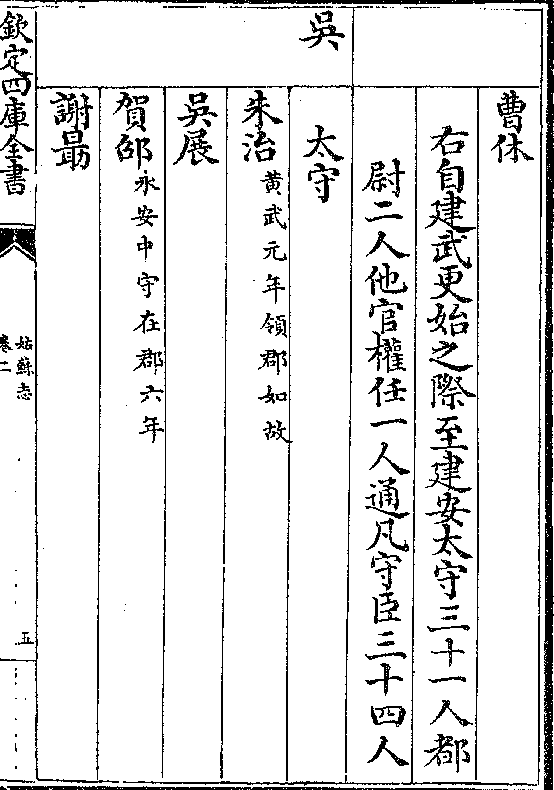 曹休
右自建武更始之際至建安太守三十一人都
尉二人他官權任一人通凡守臣三十四人
吳
太守
朱治黄武元年領郡如故
吳展
賀邵永安中守在郡六年
謝勗
欽定四庫全書
姑蘇志
卷二
五